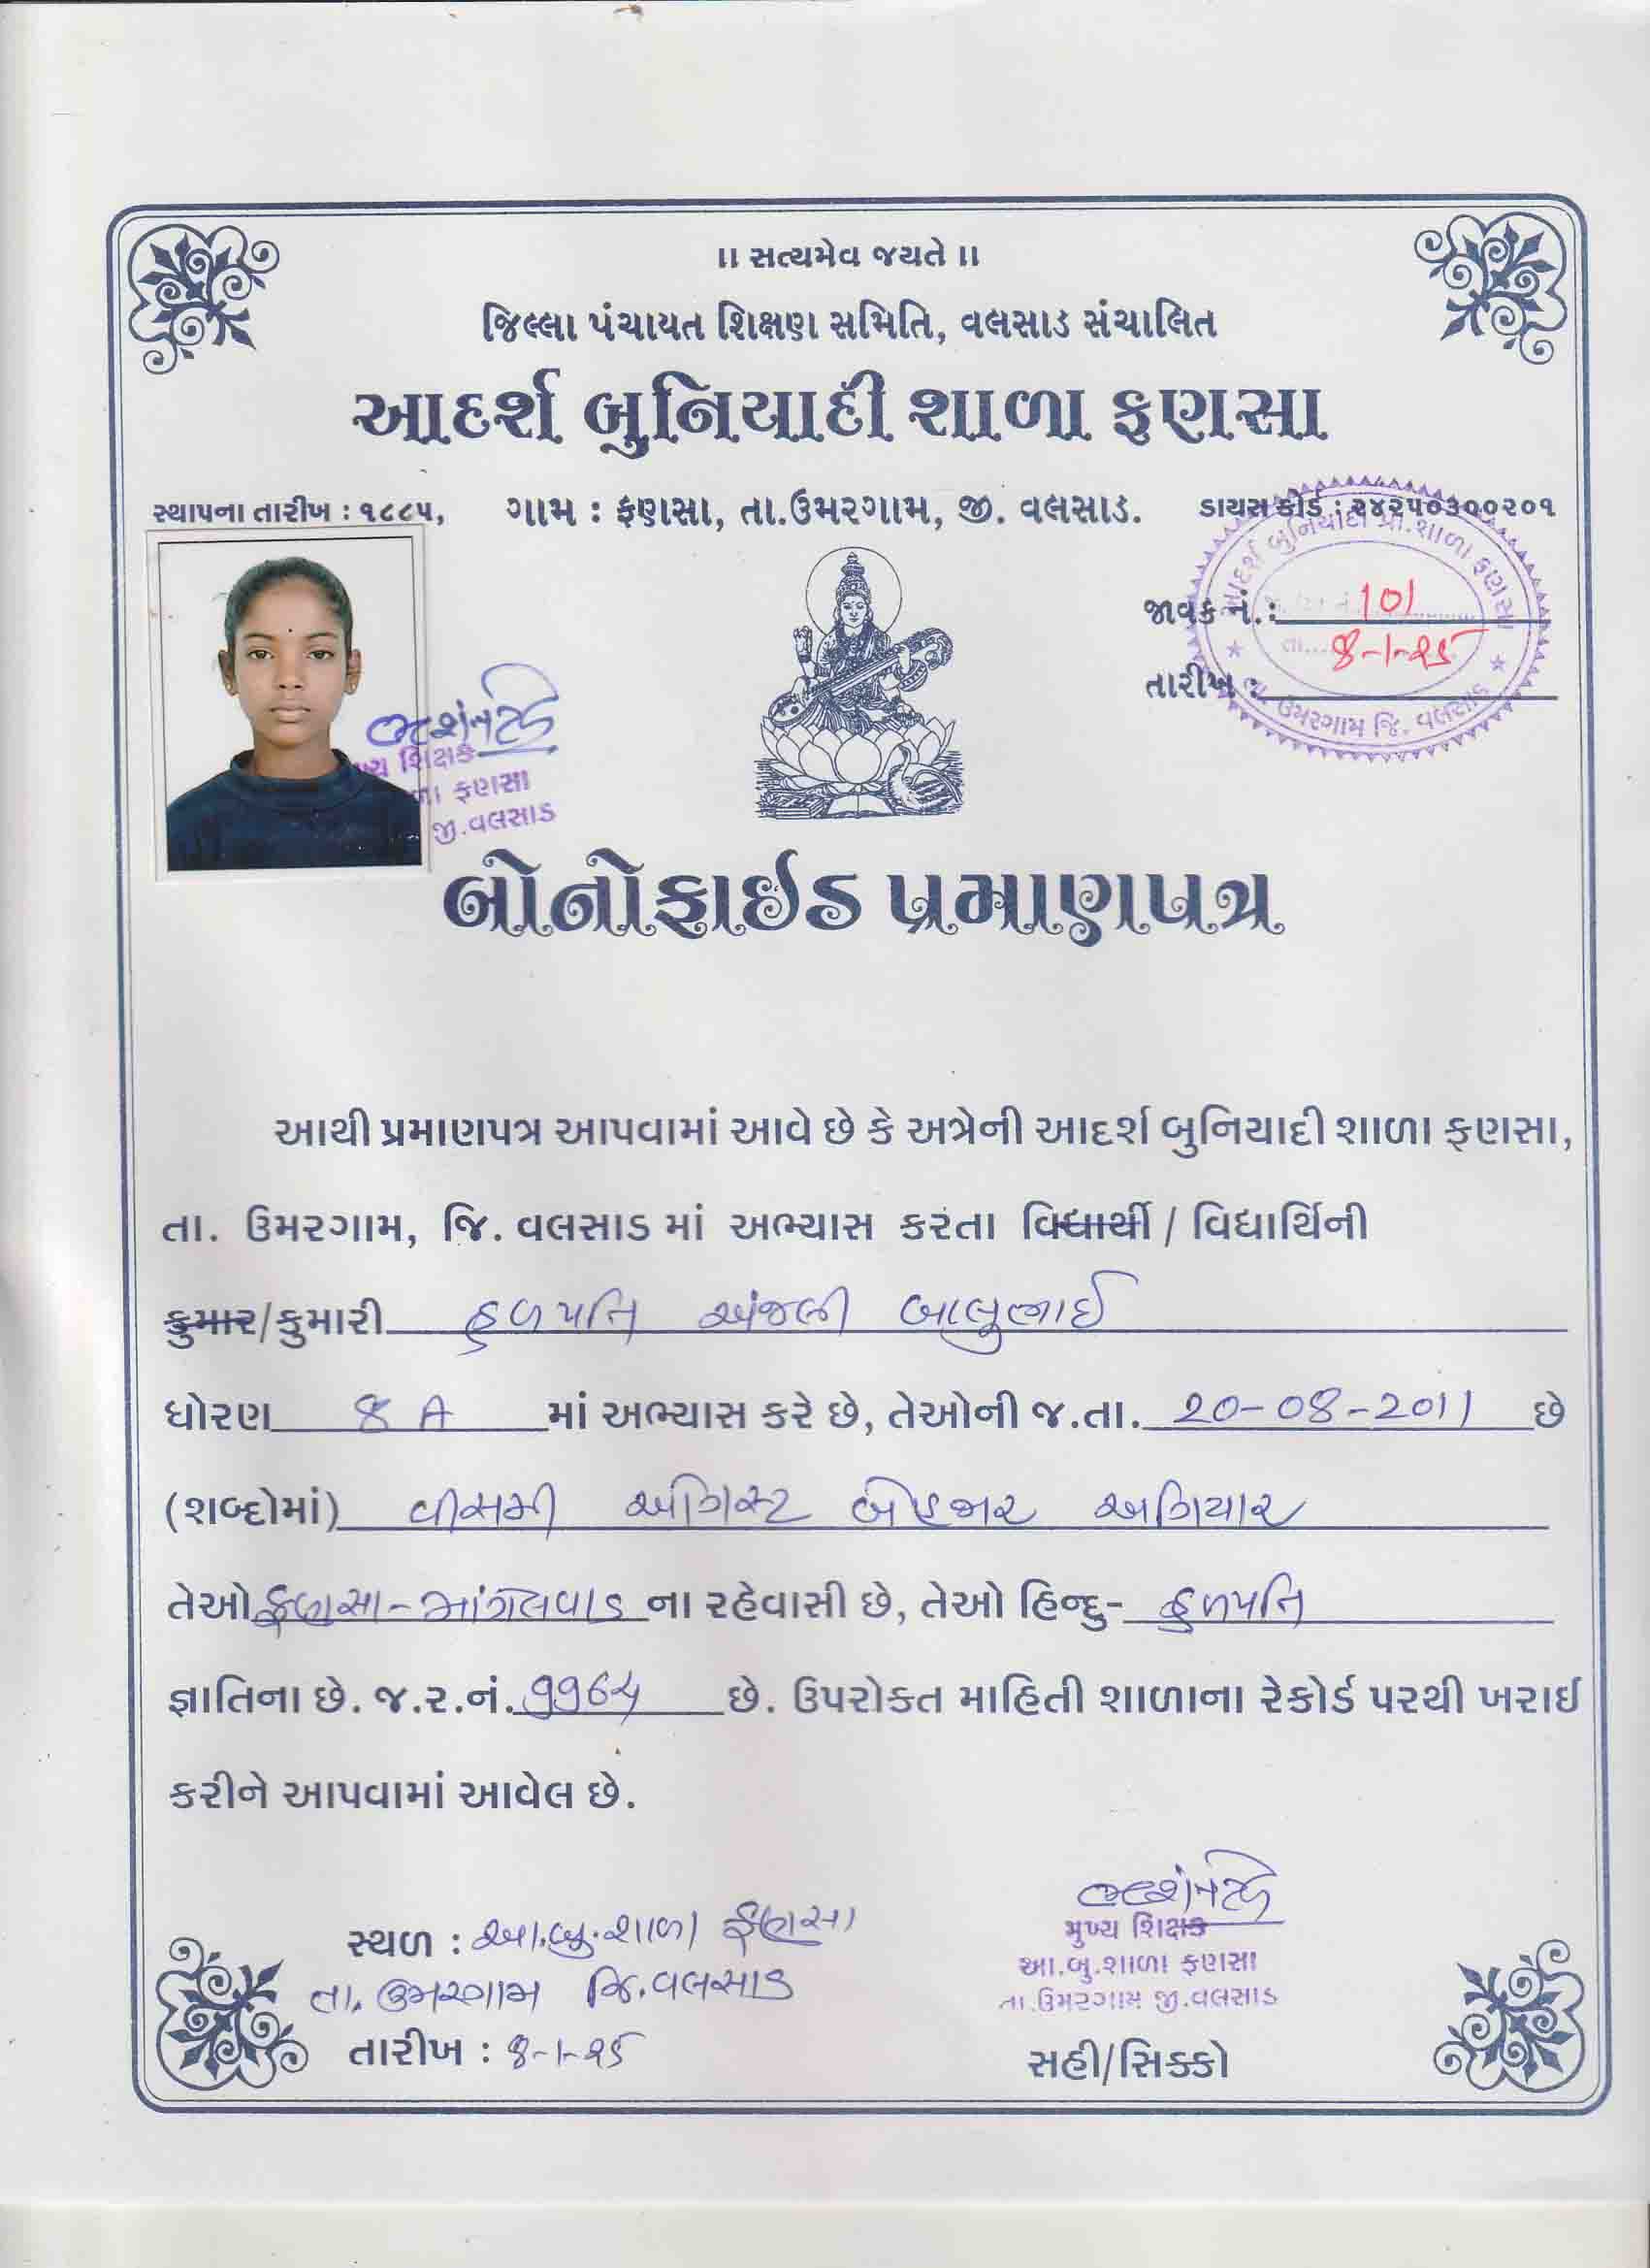 ।। સત્યમેવ જયતે ।।
જિલ્લા પંચાયત શિક્ષણ સમિતિ, વલસાડ સંચાલિત
આદર્શ બુનિયાદી શાળા ફણસા
સ્થાપના તારીખ : ૧૮૮૫, ગામ : ફણસા, તા.ઉમરગામ, જી. વલસાડ. ડાયસ કોડ : ૨૪૨૫૦૩૦૦૨૦૧
આદર્શ બુનિયાદી પ્રા.શાળા ફણસા
જાવક નં. : 101
તા. 8-1-25
તારીખ :
તા. ઉમરગામ જિ. વલસાડ
મુખ્ય શિક્ષક
શાળા ફણસા
જી.વલસાડ
બોનોફાઈડ પ્રમાણપત્ર
આથી પ્રમાણપત્ર આપવામાં આવે છે કે અત્રેની આદર્શ બુનિયાદી શાળા ફણસા,
તા. ઉમરગામ, જિ. વલસાડ માં અભ્યાસ કરતા વિદ્યાર્થી / વિદ્યાર્થિની
કુમાર/કુમારી હળપતિ અંજલી બાલુભાઈ
ધોરણ 8 A માં અભ્યાસ કરે છે, તેઓની જ.તા. 20-08-2011 છે
(શબ્દોમાં) વીસમી ઓગસ્ટ બેહજાર અગિયાર
તેઓ ફણસા- માંગેલવાડ ના રહેવાસી છે, તેઓ હિન્દુ- હળપતિ
જ્ઞાતિના છે. જ.ર.નં. છે. ઉપરોક્ત માહિતી શાળાના રેકોર્ડ પરથી ખરાઈ
કરીને આપવામાં આવેલ છે.
સ્થળ : આ.બુ.શાળા ફણસા
તા. ઉમરગામ જિ.વલસાડ
તારીખ : 8-1-25
મુખ્ય શિક્ષક
આ.બુ.શાળા ફણસા
તા.ઉમરગામ જી.વલસાડ
સહી/સિક્કો